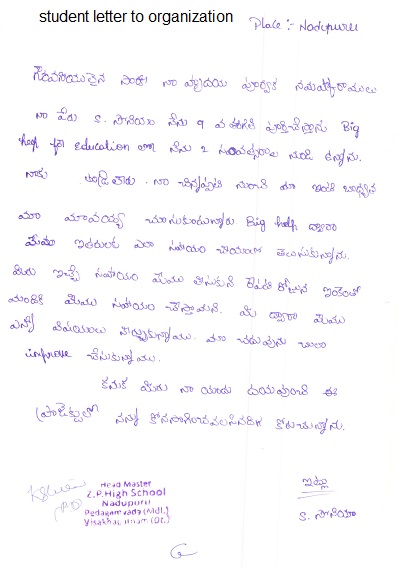 student letter to organization
Place :- Nadupuru
గౌరవనీయులైన సార్! నా హృదయ పూర్వక నమస్కారములు
నా పేరు S. సోనియా నేను 9 వ తరగతి పూర్తిచేశాను Big
help for education లో నేను 2 సంవత్సరాల నుండి ఉన్నాను.
నాకు తండ్రి లేరు. నా చిన్నప్పటి నుంచి మా ఇంటి బాధ్యత
మా మావయ్య చూసుకుంటున్నారు Big help ద్వారా
మేము ఇతరులకు ఎలా సహాయం చేయాలో తెలుసుకున్నాను.
మీరు ఇచ్చే సహాయం మేము తీసుకుని రేపటి రోజున ఇంకెంతో
మందికి మేము సహాయం చేస్తామని. మీ ద్వారా మేము
ఎన్నో విషయాలు నేర్చుకున్నాము. మా చదువును చాలా
improve చేసుకున్నాము.
కనుక మీరు నా యందు దయవుంచి ఈ
ప్రాజెక్టులో నన్ను కొనసాగించవలసినదిగా కోరుచున్నాను.
ఇట్లు
S. సోనియా
Head Master
Z.P. High School
Nadupuru
Pedagantyada (Mdl.)
Visakhapatnam (Dt.)